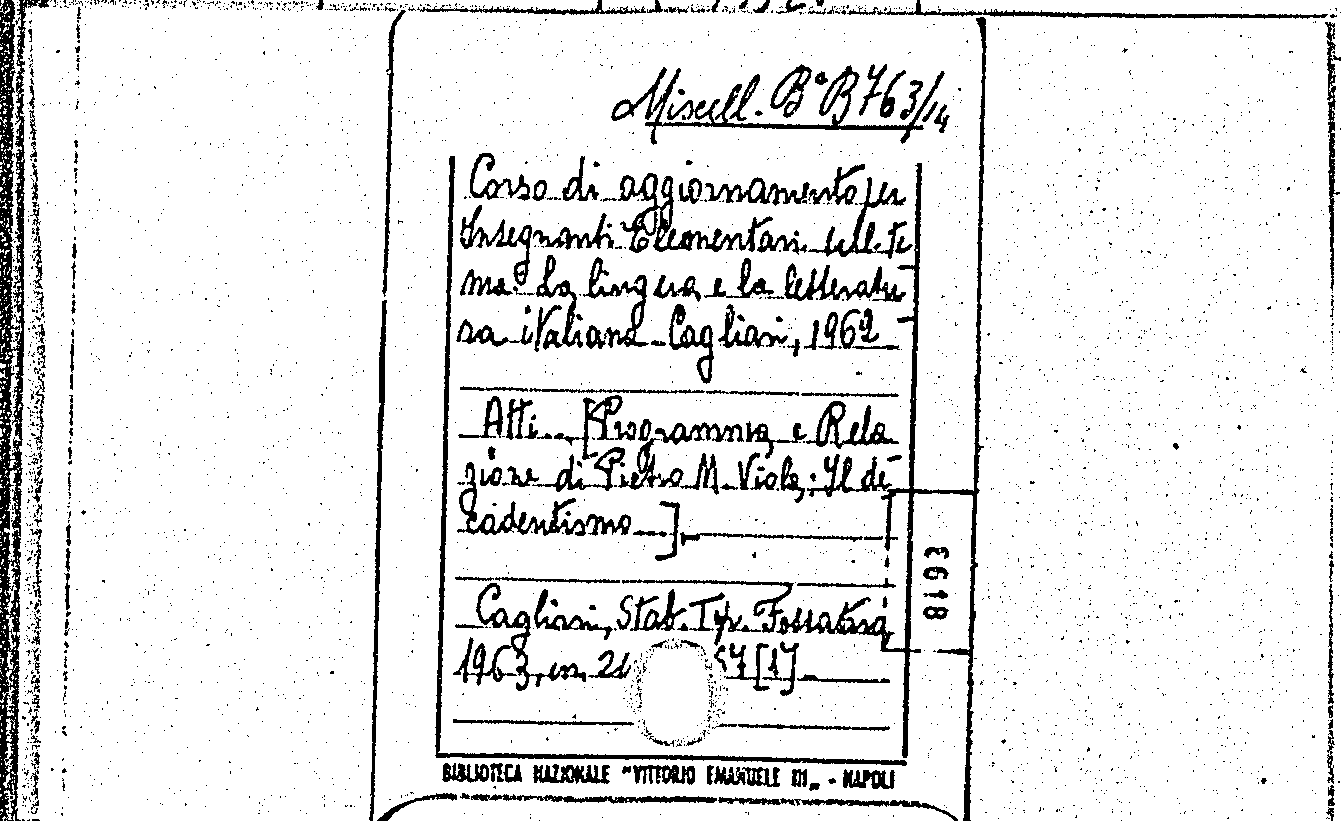 Miscell. Bª B763/14
Corso di aggiornamento per
Insegnanti Elementari sul te
ma: La lingua e la letteratu-
ra italiana - Cagliari, 1962 -
Atti... [Programma e Rela
zione di Pietro M. Viola: Il de-
cadentismo...].
Cagliari, Stab. Tip. Fossataro,
1963, in 57 [1].
BIBLIOTECA NAZIONALE "VITTORIO EMANUELE III„ - NAPOLI
8193